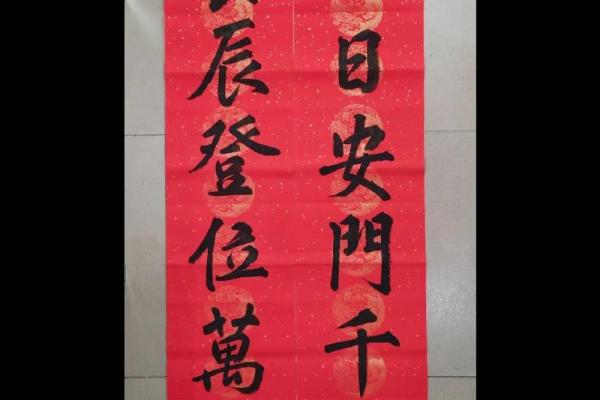 日安門千
辰登位萬